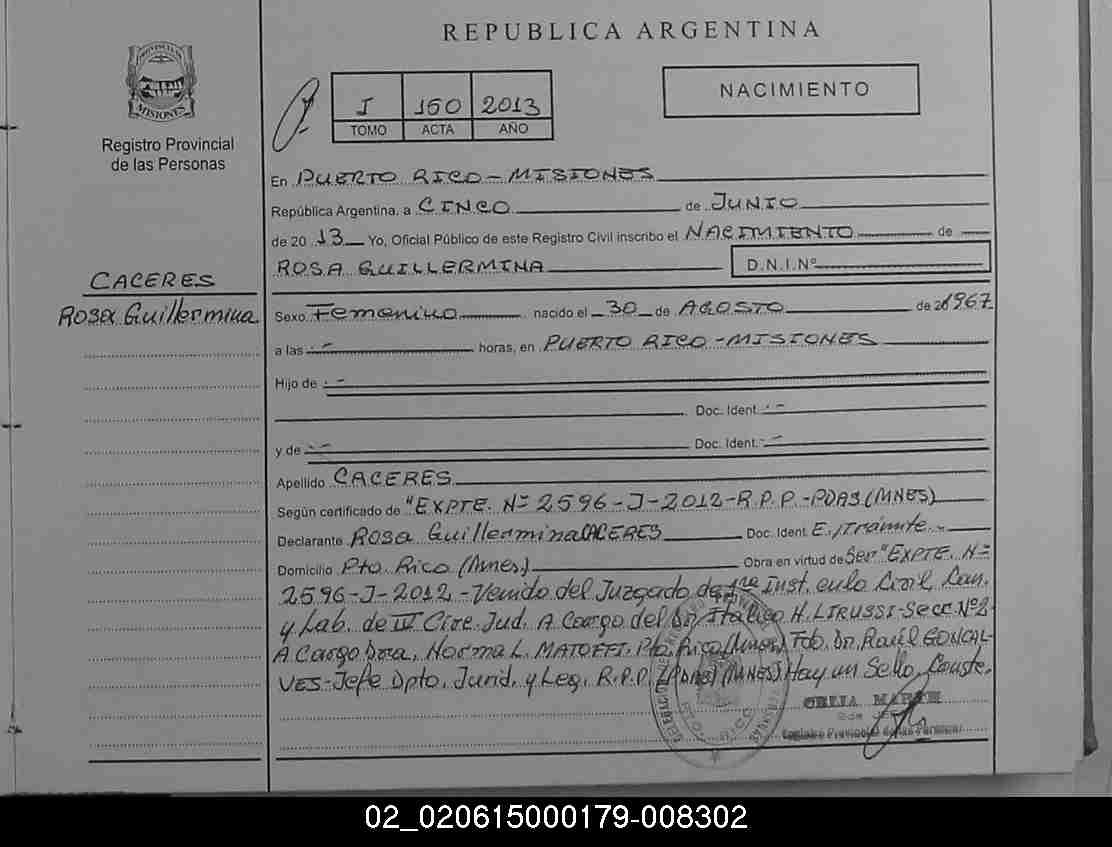 REPUBLICA ARGENTINA
PROVINCIA DE
MISIONES
Registro Provincial
de las Personas
I 150 2013
TOMO ACTA AÑO
NACIMIENTO
En PUERTO RICO - MISIONES
República Argentina, a CINCO de JUNIO
de 2013 Yo, Oficial Público de este Registro Civil inscribo el NACIMIENTO de
ROSA GUILLERMINA D.N.I.Nº
CACERES
Rosa Guillermina
Sexo Femenino nacido el 30 de AGOSTO de 1967
a las .- horas, en PUERTO RICO - MISIONES
Hijo de .-
Doc. Ident. .-
y de .- Doc. Ident. .-
Apellido CACERES
Según certificado de "EXPTE. Nº 2596-J-2012-R.P.P.-PDAS (MNES)
Declarante Rosa Guillermina CACERES Doc. Ident. E./Trámite.-
Domicilio Pto. Rico (Mnes.) Obra en virtud de Ser "EXPTE. Nº
2596-J-2012.-Venido del Juzgado de 1ra Inst. en lo Civil, Com.
y Lab. de IV Circ. Jud. A Cargo del Dr. Itálico H. LIRUSSI-Secr. Nº 2-
A Cargo Dra. Norma L. MATOFFI. Pto. Rico (Mnes.) Fdo. Dr. Raúl GONCAL-
VES-Jefe Dpto. Jurid. y Leg. R.P.P. (PDAS) (MNES) Hay un Sello. Conste.
CELIA
Registro Provincial de las Personas
02_020615000179-008302